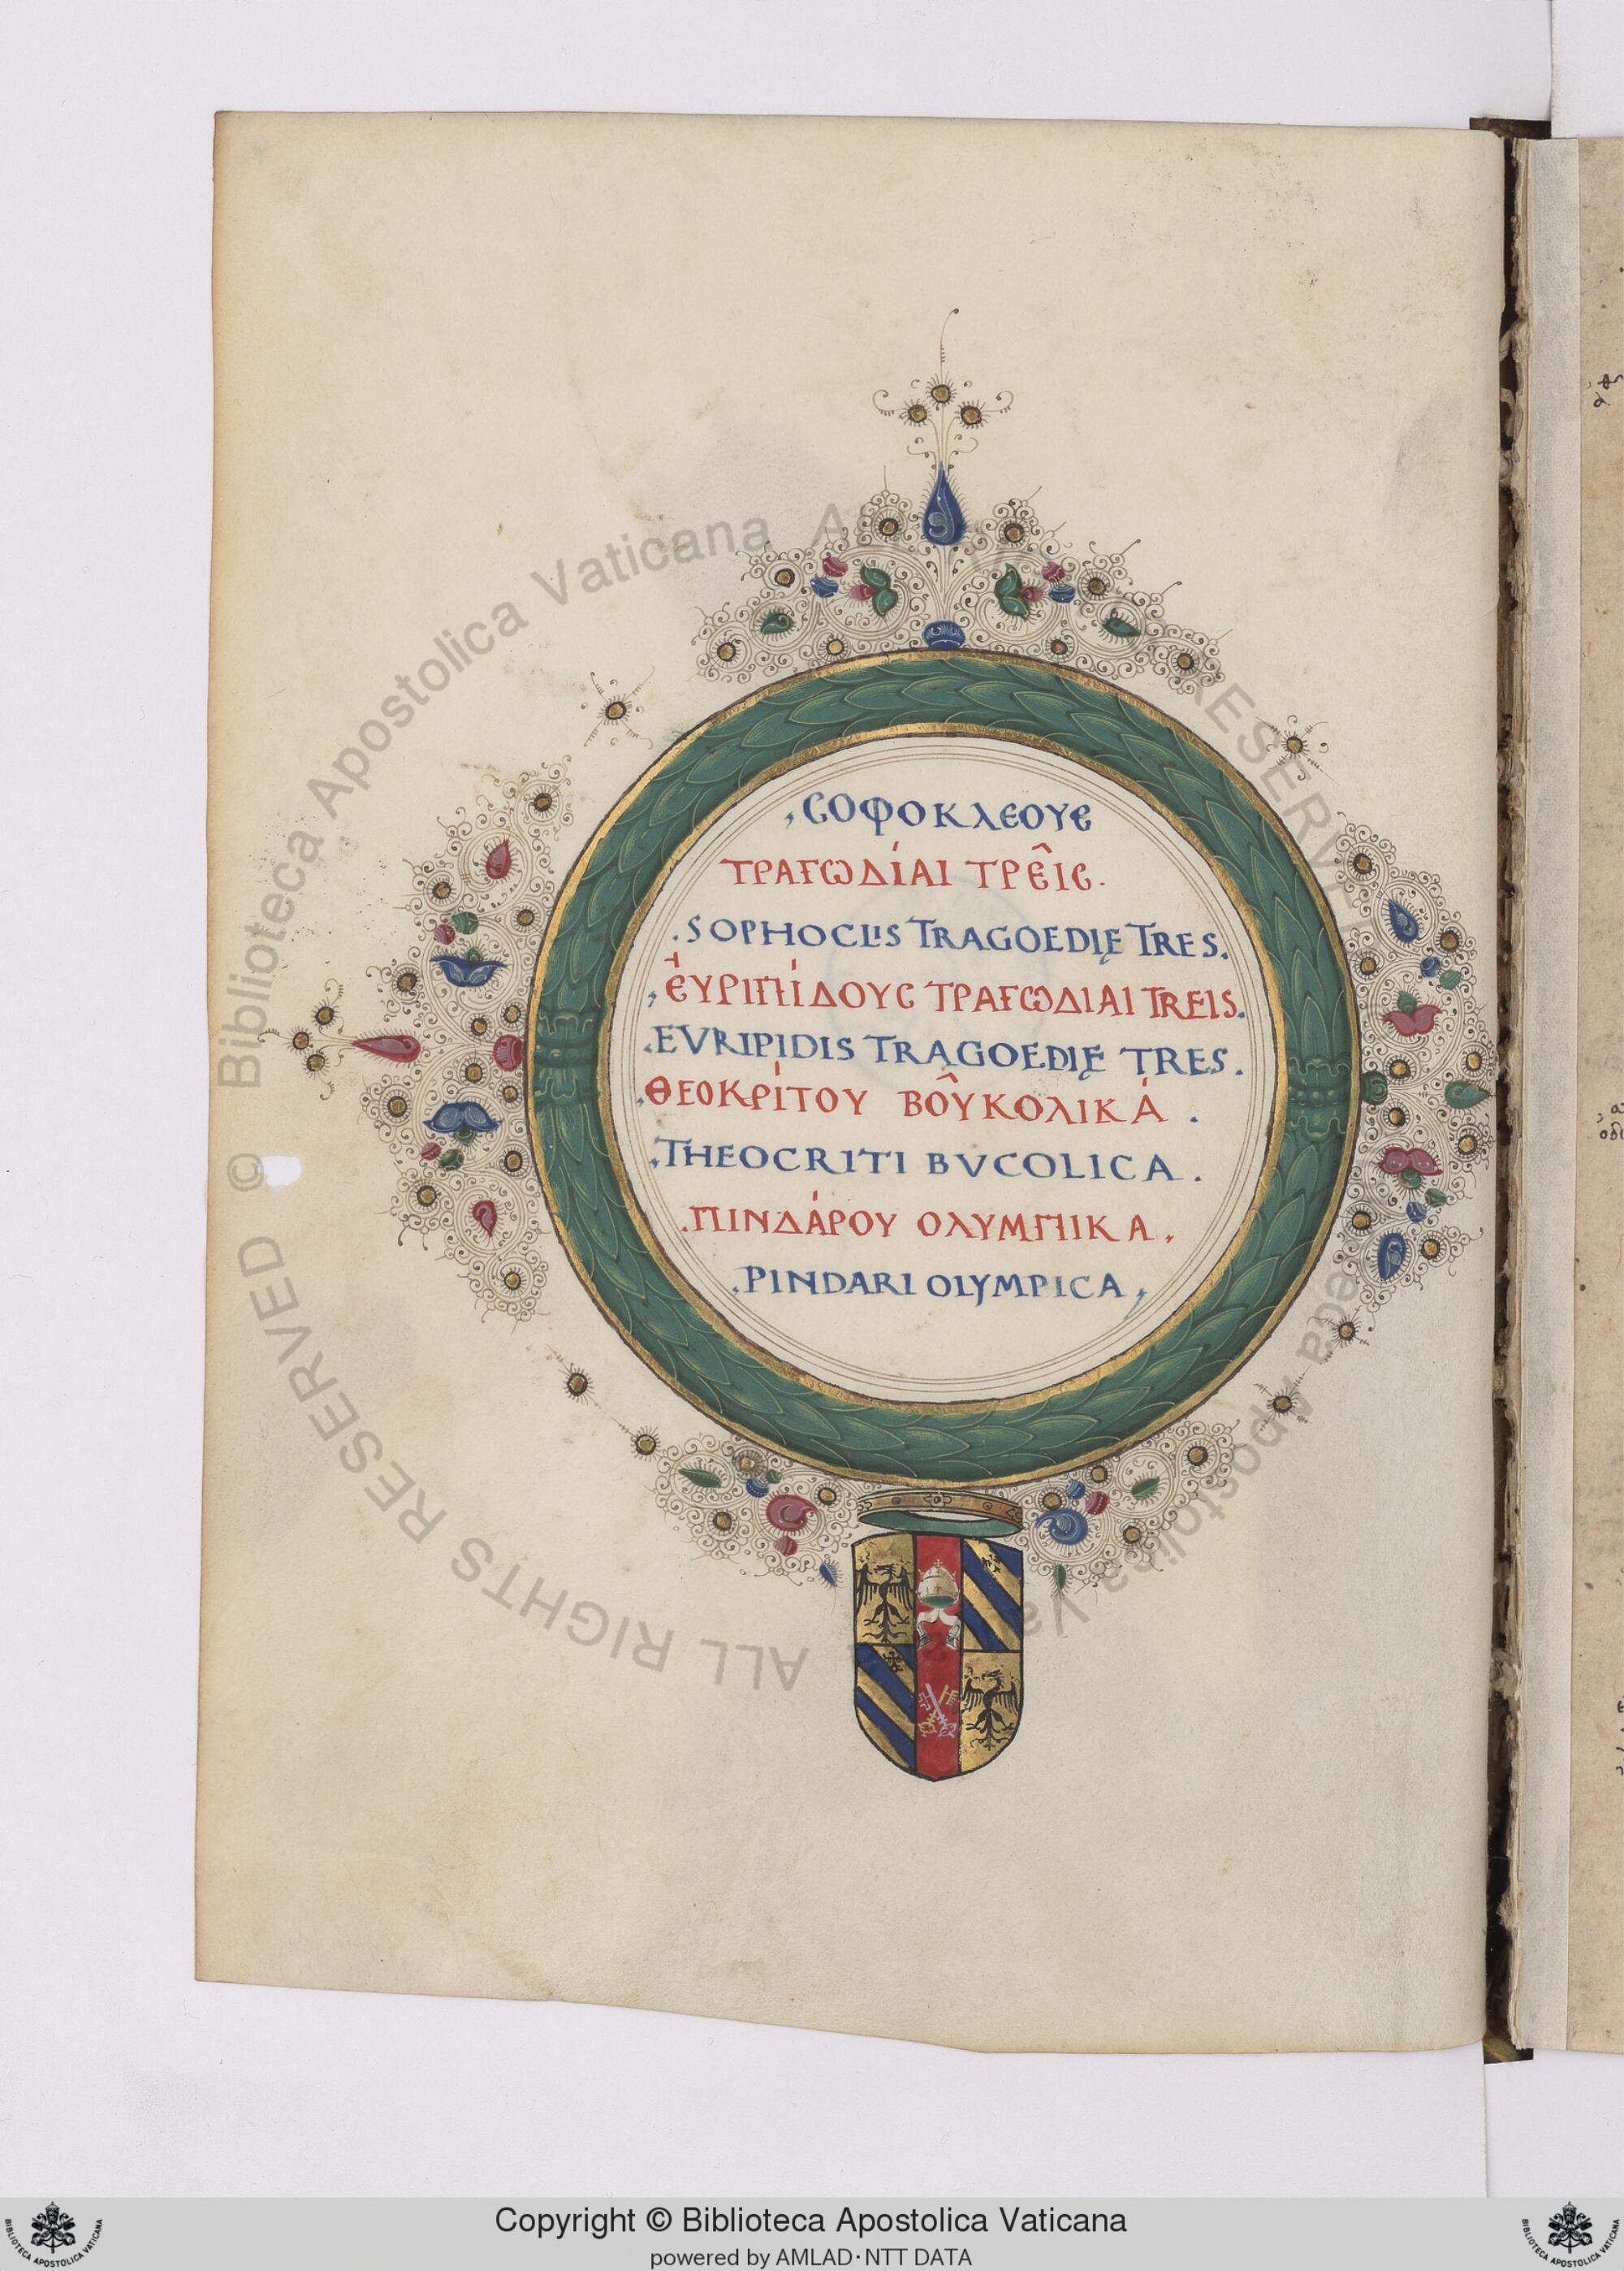 ,ϹΟΦΟΚΛΕΟΥϹ
ΤΡΑΓΩΔΊΑΙ ΤΡΕ͂ΙϹ.
.SOPHOCLIS TRAGOEDIĘ TRES.
,ἘΥΡΙΠΊΔΟΥϹ ΤΡΑΓΩΔΙΑΙ TREIS.
.EVRIPIDIS TRAGOEDIĘ TRES.
,ΘΕΟΚΡΊΤΟΥ ΒΟ͂ΥΚΟΛΙΚΆ .
,THEOCRITI BVCOLICA.
.ΠΙΝΔΆΡΟΥ ΟΛΥΜΠΙΚΑ.
.PINDARI OLYMPICA,
© Biblioteca Apostolica Vaticana ALL RIGHTS RESERVED
Copyright © Biblioteca Apostolica Vaticana
powered by AMLAD·NTT DATA
BIBLIOTECA APOSTOLICA VATICANA
BIBLIOTECA APOSTOLICA VATICANA